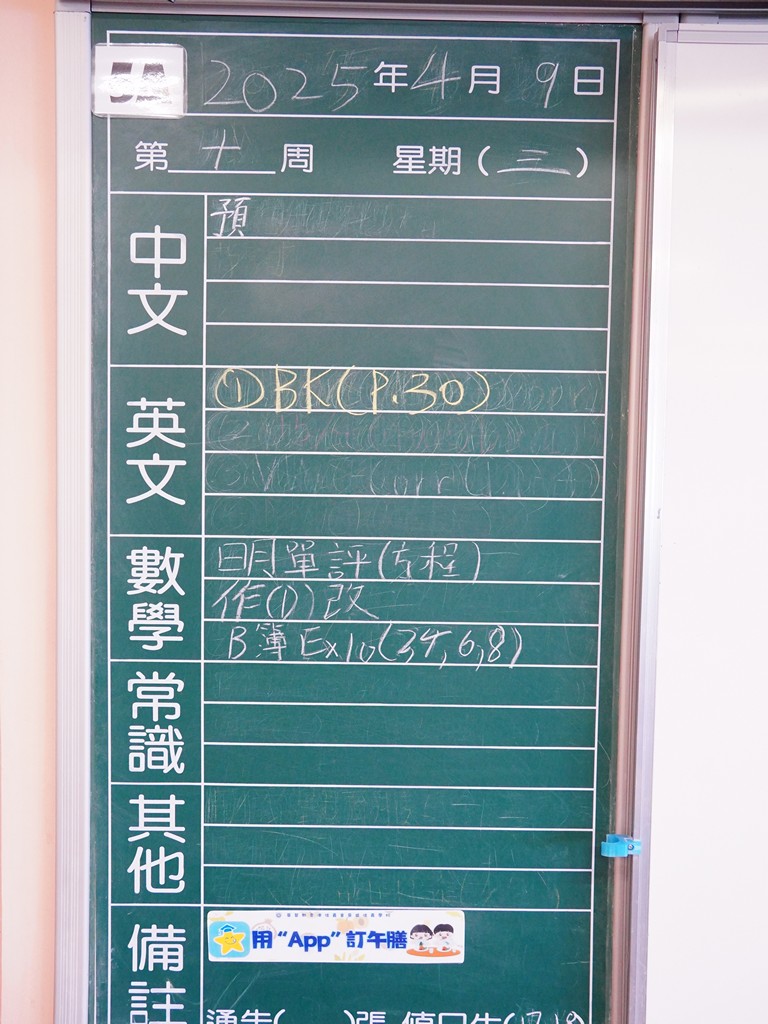 5A
2025年4月9日
第十周 星期(三)
中文
預
英文
①BK(P.30)
數學
明單評(方程)
作(1)改
B簿 Ex10(2,4,6,8)
常識
其他
備註
用“App”訂午膳
通告( )張 值日生(